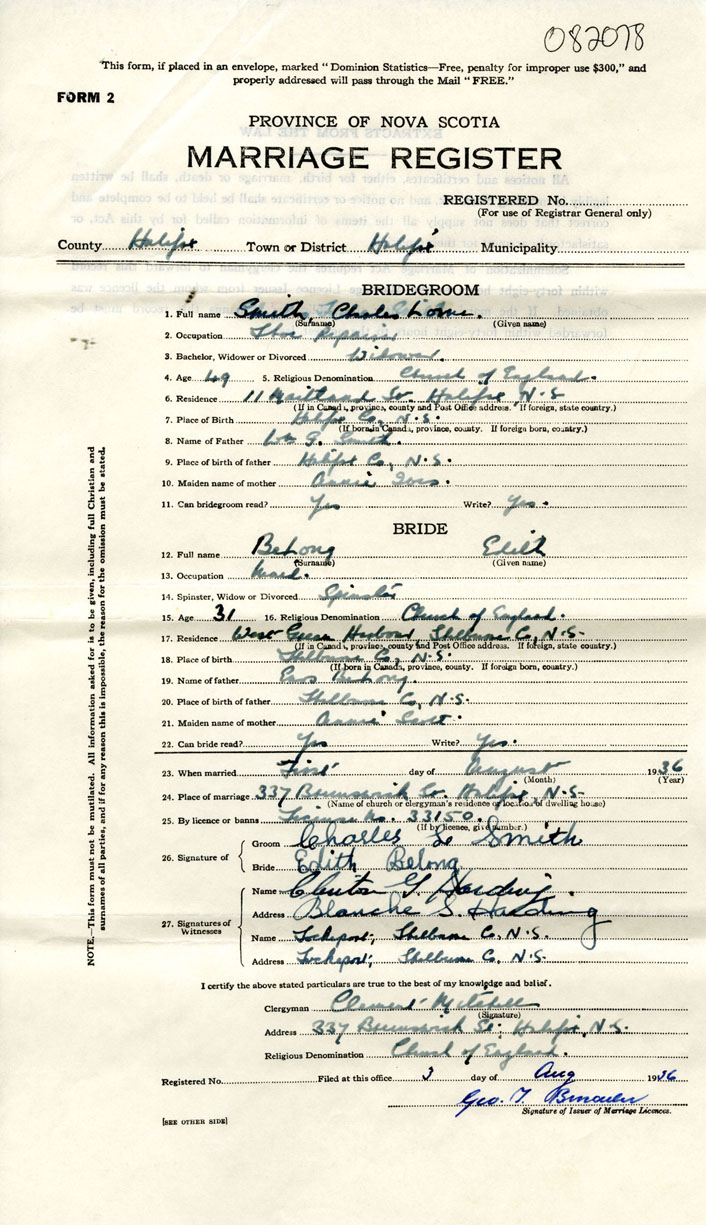 082078
This form, if placed in an envelope, marked "Dominion Statistics—Free, penalty for improper use $300," and
properly addressed will pass through the Mail "FREE."
FORM 2
PROVINCE OF NOVA SCOTIA
MARRIAGE REGISTER
REGISTERED No.
(For use of Registrar General only)
County Halifax Town or District Halifax Municipality
BRIDEGROOM
1. Full name Smith, Charles Lowe.
(Surname) (Given name)
2. Occupation Shoe Repairer
3. Bachelor, Widower or Divorced Widower.
4. Age 49 5. Religious Denomination Church of England.
6. Residence 11 Maitland St. Halifax N.S
(If in Canada, province, county and Post Office address. If foreign, state country.)
7. Place of Birth Halifax Co, N.S.
(If born in Canada, province, county. If foreign born, country.)
8. Name of Father Wm G. Smith.
9. Place of birth of father Halifax Co, N.S.
10. Maiden name of mother Annie
11. Can bridegroom read? Yes Write? Yes.
BRIDE
12. Full name Belong Edith
(Surname) (Given name)
13. Occupation Maid.
14. Spinster, Widow or Divorced Spinster
15. Age 31 16. Religious Denomination Church of England.
17. Residence West Green Harbour, Shelburne Co, N.S.
(If in Canada, province, county and Post Office address. If foreign, state country.)
18. Place of birth Shelburne Co, N.S.
(If born in Canada, province, county. If foreign born, country.)
19. Name of father Enos Belong.
20. Place of birth of father Shelburne Co, N.S.
21. Maiden name of mother Annie Scott.
22. Can bride read? Yes Write? Yes.
23. When married First day of August 1936
(Month) (Year)
24. Place of marriage 337 Brunswick St. Halifax, N.S
(Name of church or clergyman's residence or location of dwelling house)
25. By licence or banns License No. 33150.
(If by licence, give number.)
26. Signature of
Groom Charles L Smith
Bride Edith Belong
27. Signatures of Witnesses
Name Clinton G. Harding.
Address Blanche S. Harding
Name Lockeport, Shelburne Co. N.S.
Address Lockeport, Shelburne Co, N.S.
I certify the above stated particulars are true to the best of my knowledge and belief.
Clergyman Clement Mitchell
(Signature)
Address 337 Brunswick St. Halifax, N.S.
Religious Denomination Church of England.
Registered No. Filed at this office 3 day of Aug 1936
Geo. T.
Signature of Issuer of Marriage Licences.
[SEE OTHER SIDE]
NOTE.—This form must not be mutilated. All information asked for is to be given, including full Christian and
surnames of all parties, and if for any reason this is impossible, the reason for the omission must be stated.